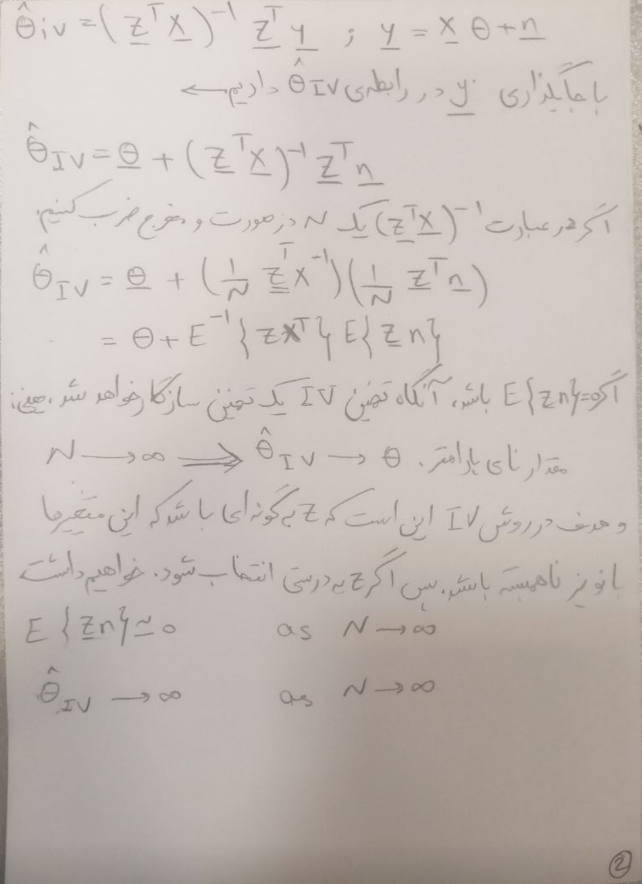 θ̂iv = (Z^T X)^-1 Z^T y ; y = x θ + n
با جایگذاری y در رابطه‌ی θ̂IV داریم ←
θ̂IV = θ + (Z^T X)^-1 Z^T n
اگر در عبارت (Z^T X)^-1 یک N در صورت و مخرج ضرب کنیم.
θ̂IV = θ + (1/N Z^T X^-1)(1/N Z^T n)
= θ + E^-1{ZX^T} E{Zn}
اگر E{Zn}=0 باشد، آنگاه تخمین IV یک تخمین سازگار خواهد شد، یعنی:
N → ∞ ⟹ θ̂IV → θ مقدار نامی پارامتر.
و هدف در روش IV این است که Z به گونه‌ای باشد که این متغیرها
با نویز ناهمبسته باشد. پس اگر Z به درستی انتخاب شود. خواهیم داشت
E{Zn} ≃ 0 as N → ∞
θ̂IV → ∞ as N → ∞
2